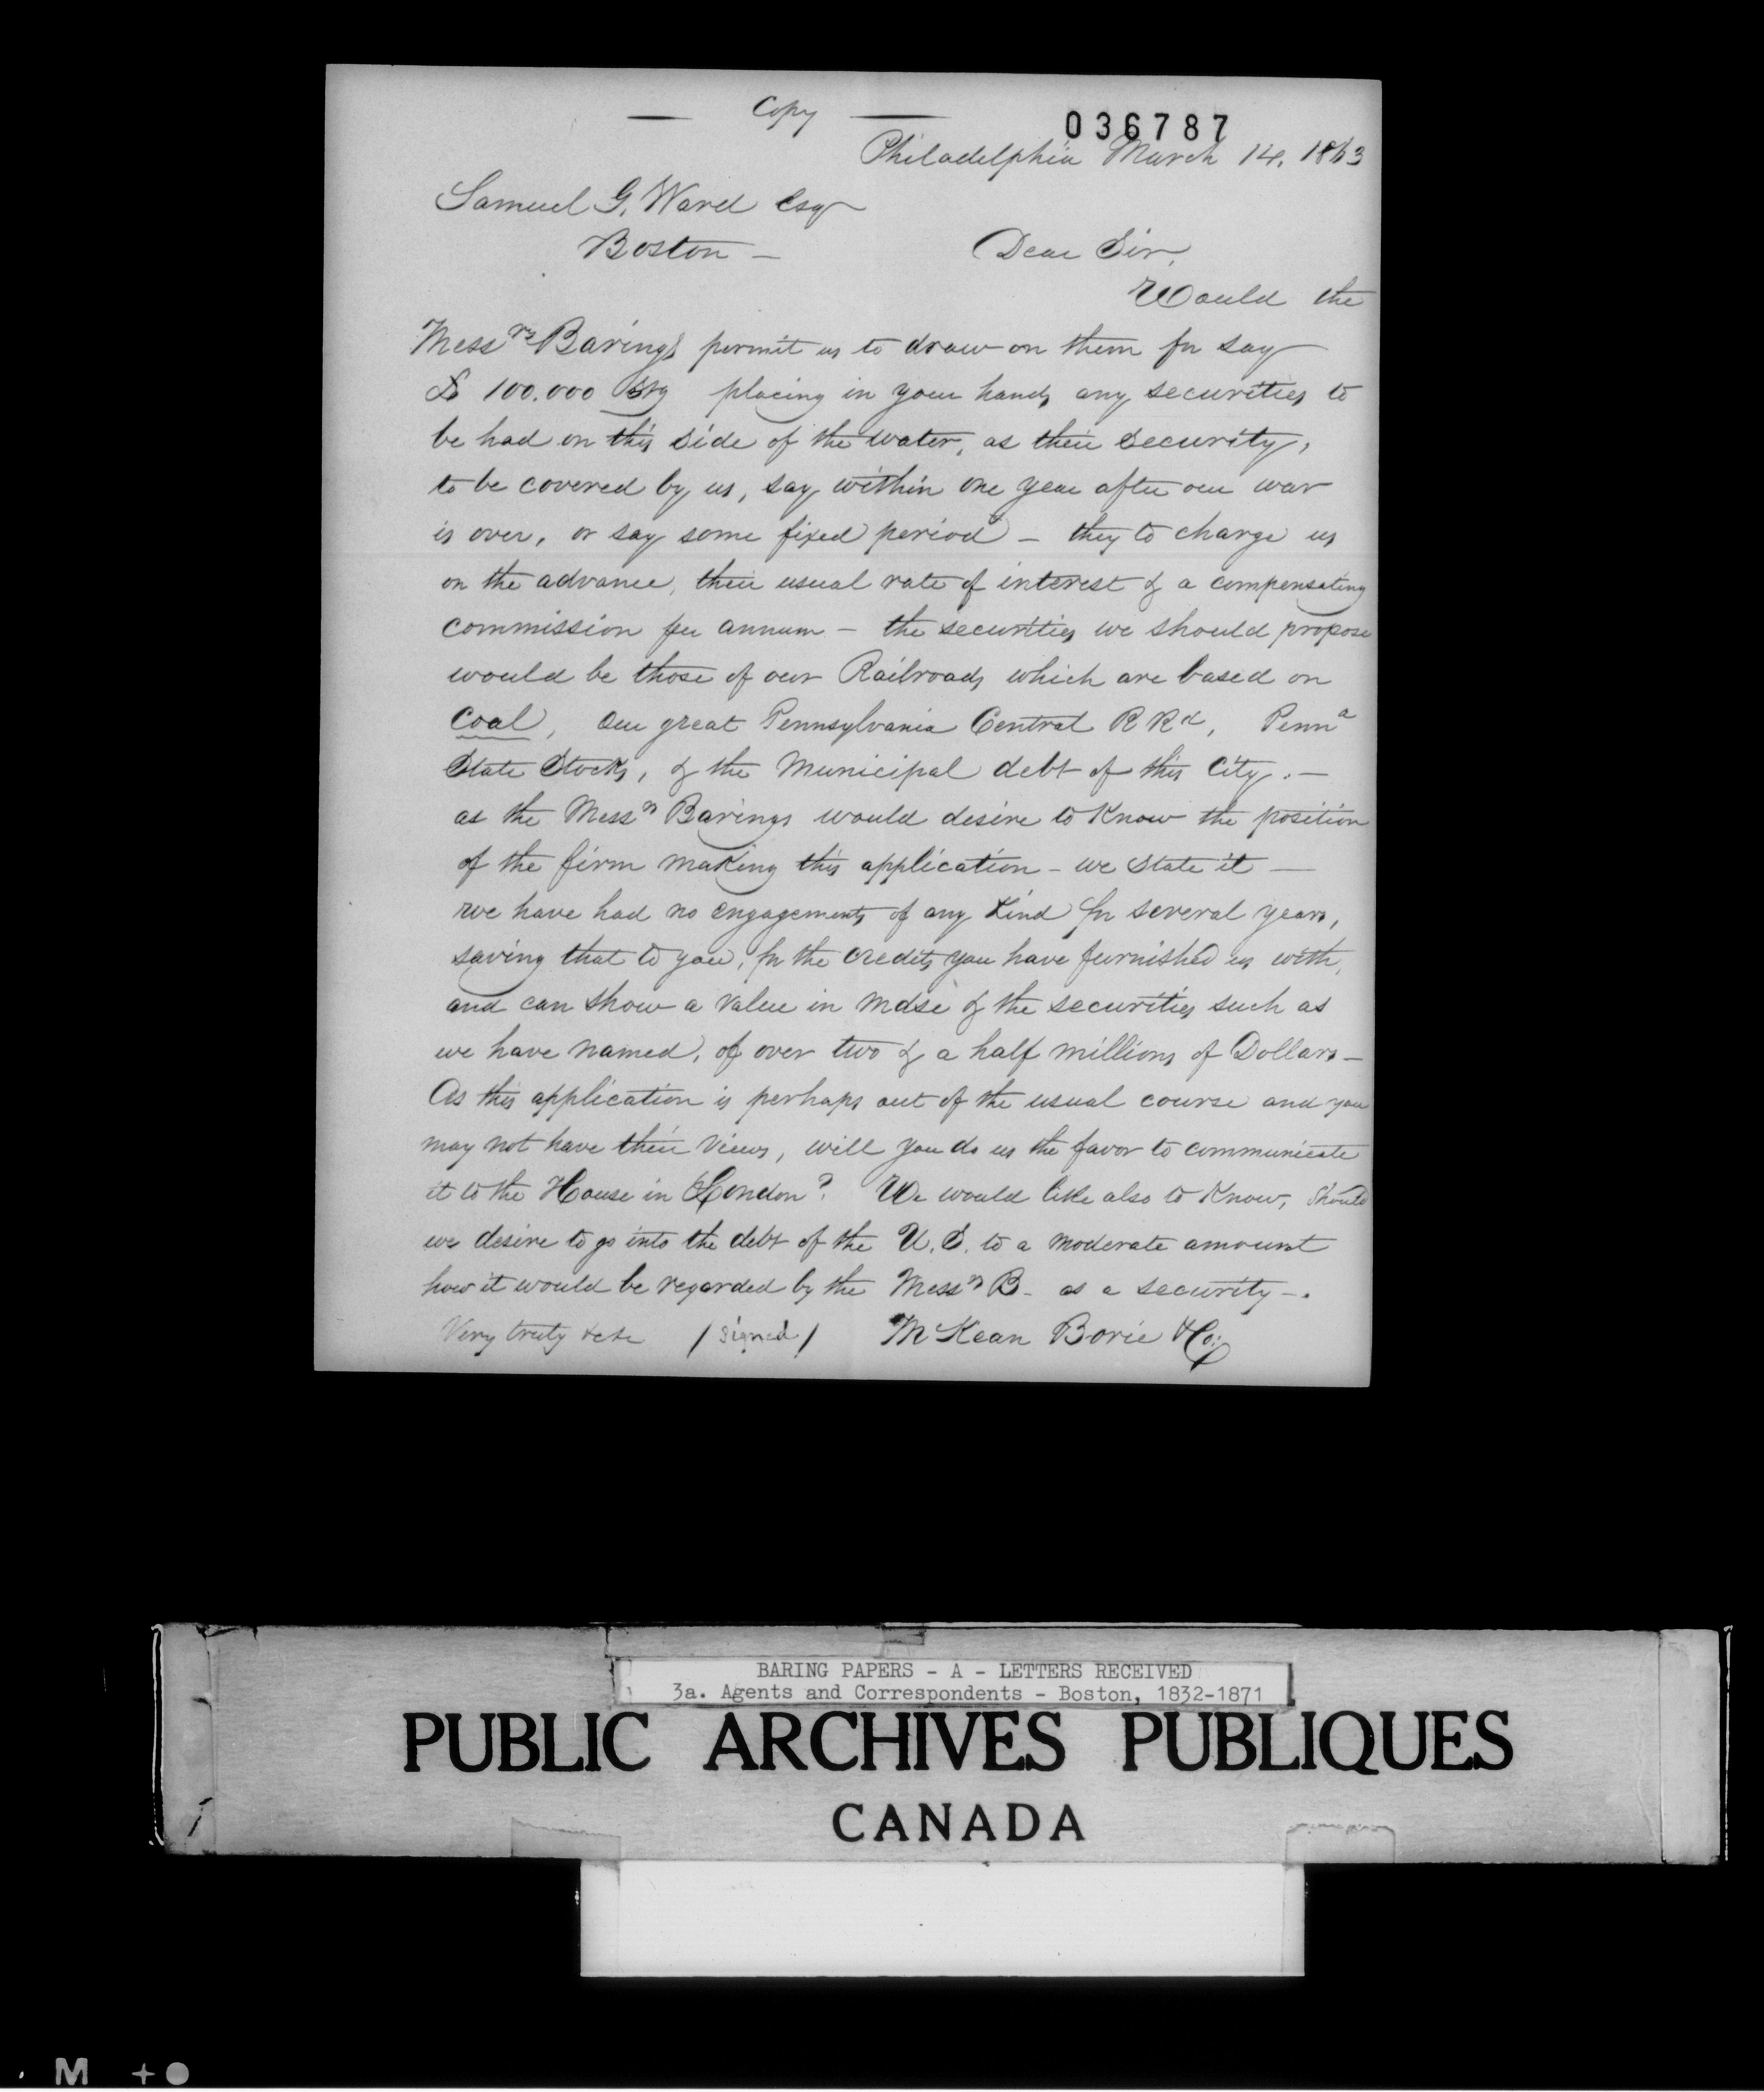 — Copy —
036787
Philadelphia March 14, 1863
Samuel G. Ward Esq
Boston — Dear Sir,
Would the
Messrs Barings permit us to draw on them for say
£ 100.000 Stg placing in your hands any securities to
be had on this side of the water, as their security,
to be covered by us, say within one year after our war
is over, or say some fixed period — they to charge us
on the advance, their usual rate of interest & a compensating
commission per annum — the securities we should propose
would be those of our Railroads which are based on
Coal, our great Pennsylvania Central R Rd, Penna
State Stocks, & the Municipal debt of this City. —
as the Messrs Barings would desire to Know the position
of the firm making this application — we state it —
we have had no engagements of any Kind for several years,
saving that to you, for the credits you have furnished us with,
and can show a value in mdse & the securities such as
we have named, of over two & a half millions of Dollars —
As this application is perhaps out of the usual course and you
may not have their views, will you do us the favor to communicate
it to the House in London? We would like also to Know, should
we desire to go into the debt of the U.S. to a moderate amount
how it would be regarded by the Messrs B — as a security —.
Very truly &c &c / signed / McKean Borie & Co:
BARING PAPERS - A - LETTERS RECEIVED
3a. Agents and Correspondents - Boston, 1832-1871
PUBLIC ARCHIVES PUBLIQUES
CANADA
M +